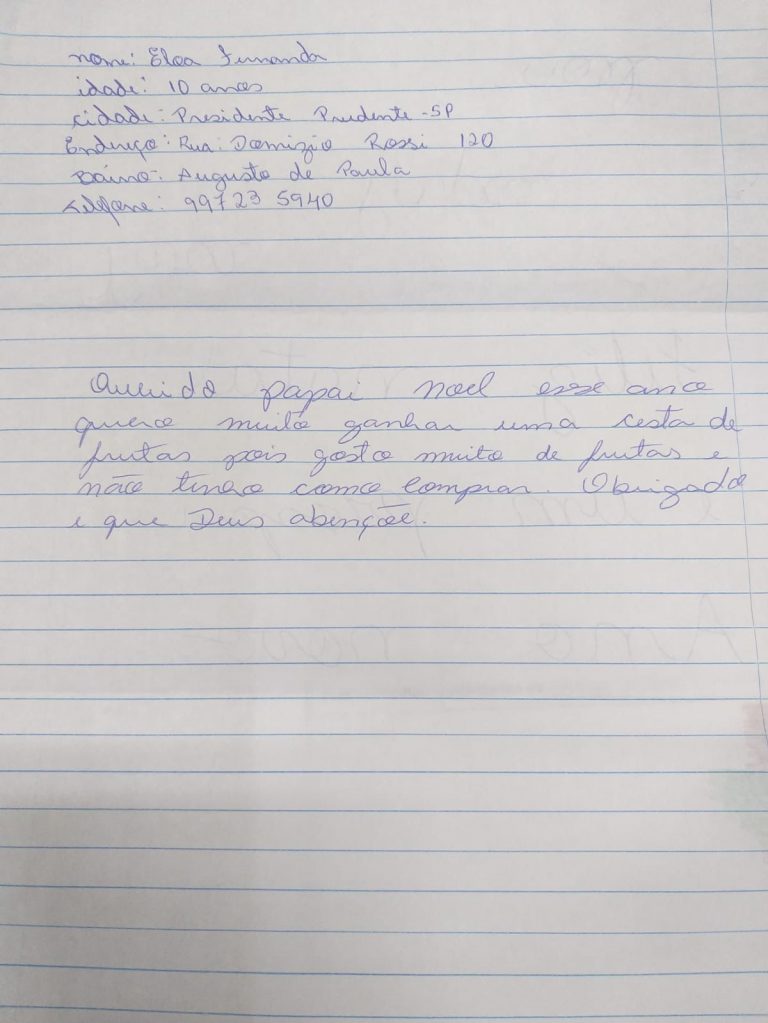 nome: Eloa Fernanda
idade: 10 anos
cidade: Presidente Prudente-SP
Endereço: Rua: Domizio Rossi 120
Bairro: Augusto de Paula
telefone: 99723 5940
Querido papai noel esse ano
quero muito ganhar uma cesta de
frutas pois gosto muito de frutas e
não tenho como comprar. Obrigado
e que Deus abençõe.